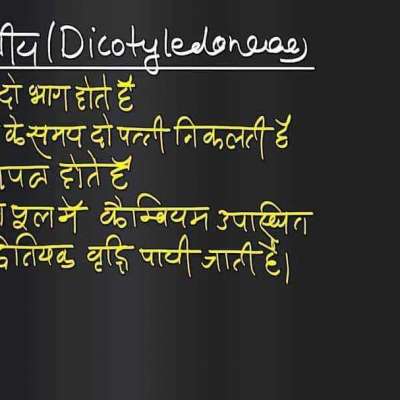 ीय (Dicotyledoneae)
दो भाग होते हैं
के समय दो पत्ती निकलती हैं
होते हैं
मूल में कैम्बियम उपस्थित
द्वितियक वृद्धि पायी जाती है।